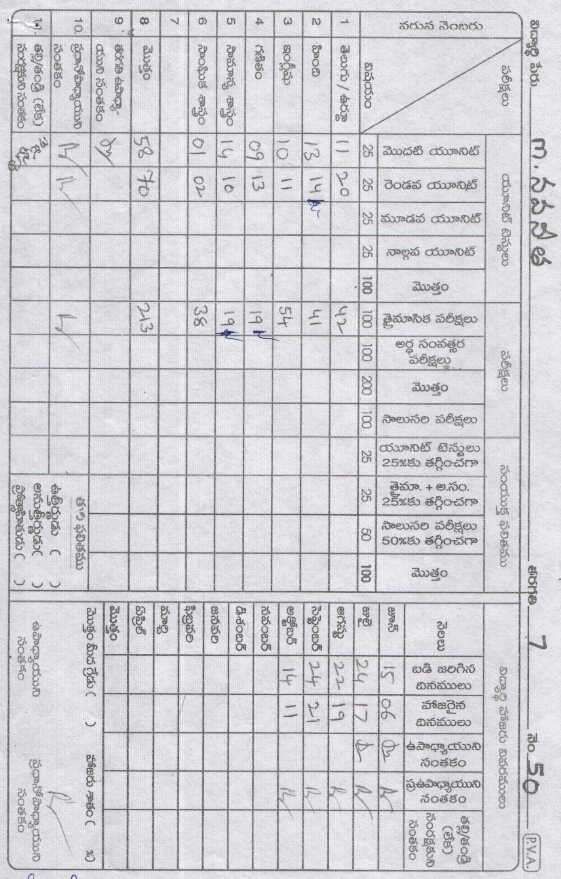 విద్యార్థి పేరు తరగతి 7 నెం. 50 P.V.A.
పరీక్షలు యూనిట్ టెస్టులు పరీక్షలు సంయుక్త ఫలితము
వరుస నెంబరు విషయం మొదటి యూనిట్ రెండవ యూనిట్ మూడవ యూనిట్ నాల్గవ యూనిట్ మొత్తం త్రైమాసిక పరీక్షలు అర్ధ సంవత్సర పరీక్షలు మొత్తం సాలుసరి పరీక్షలు యూనిట్ టెస్టులు 25%కు తగ్గించగా త్రైమా. + అ.సం. 25%కు తగ్గించగా సాలుసరి పరీక్షలు 50%కు తగ్గించగా మొత్తం
25 25 25 25 100 100 100 200 100 25 25 50 100
1 తెలుగు / ఉర్దూ 11 20 42
2 హింది 13 14 41
3 ఇంగ్లీషు 10 11 54
4 గణితం 09 13 19
5 సామాన్య శాస్త్రం 14 10 19
6 సాంఘిక శాస్త్రం 01 02 38
7
8 మొత్తం 58 70 213
9 తరగతి ఉపాధ్యాయుని సంతకం
10. ప్రధానోపాధ్యాయుని సంతకం
11. తల్లి/తండ్రి (లేక) సంరక్షకుని సంతకం
తుది ఫలితము
ఉత్తీర్ణుడు ( )
అనుత్తీర్ణుడు ( )
ప్రోత్సాహితుడు ( )
విద్యార్థి హాజరు వివరములు
నెలలు బడి జరిగిన దినములు హాజరైన దినములు ఉపాధ్యాయుని సంతకం ప్రఉపాధ్యాయుని సంతకం తల్లి/తండ్రి (లేక) సంరక్షకుని సంతకం
జూన్ 15 06
జులై 24 17
ఆగస్టు 22 19
సెప్టెంబర్ 24 21
అక్టోబర్ 14 11
నవంబర్
డిశంబర్
జనవరి
ఫిబ్రవరి
మార్చి
ఏప్రిల్
మొత్తం
మొత్తం మీద గ్రేడు ( ) హాజరు శాతం ( %)
ఉపాధ్యాయుని సంతకం ప్రధానోపాధ్యాయుని సంతకం